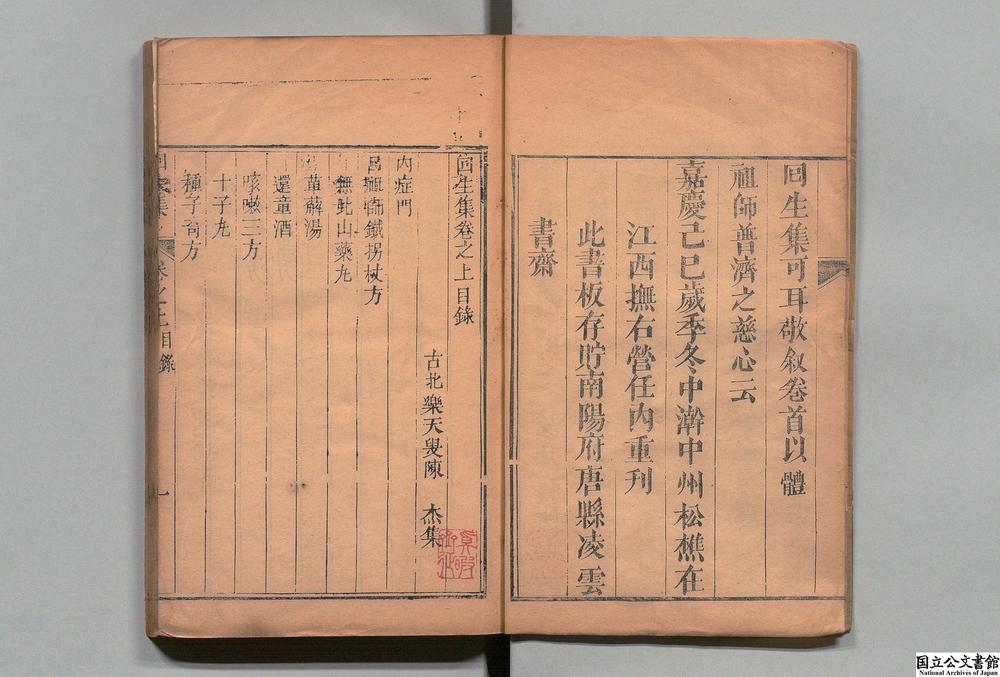 回生集可耳敬叙卷首以體
祖師普濟之慈心云
嘉慶己巳歲季冬中澣中州松樵在
江西撫右營任內重刊
此書板存貯南陽府唐縣凌雲
書齋
回生集卷之上目錄
古北樂天叟陳 杰集
內症門
呂祖師鐵拐杖方
無比山藥丸
萆薢湯
還童酒
咳嗽三方
十子丸
種子奇方
回生集 卷之上目錄 一
国立公文書館
National Archives of Japan